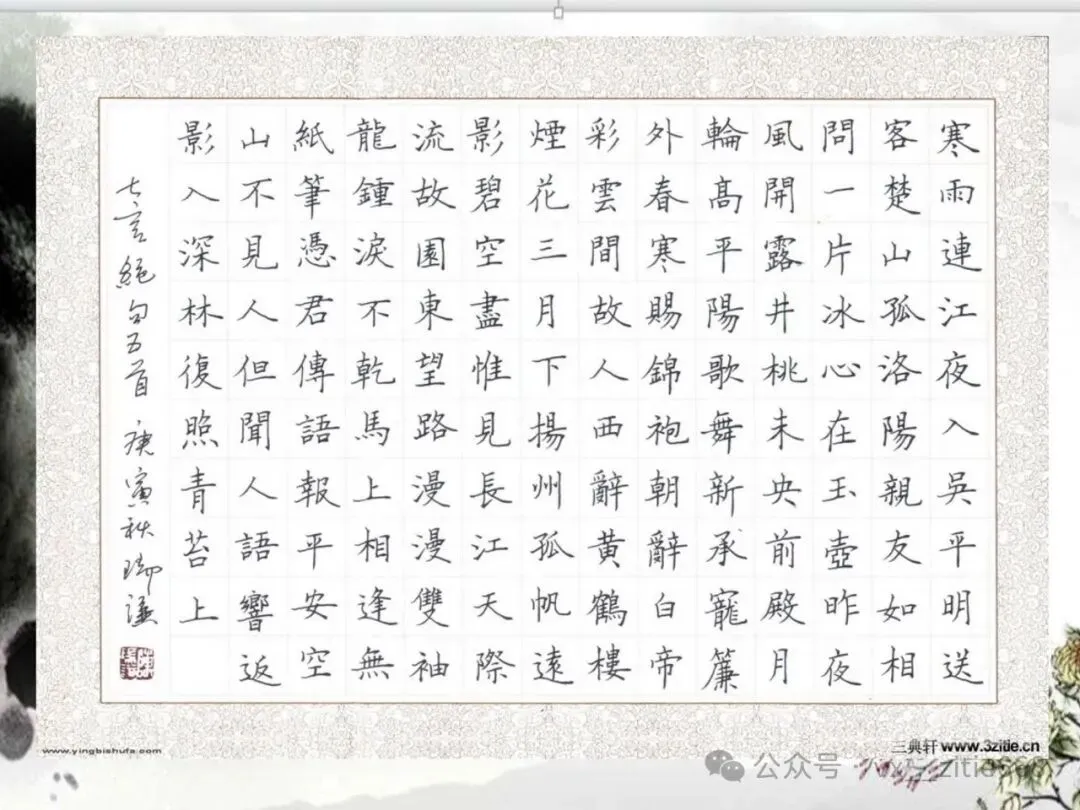 寒雨連江夜入吳平明送
客楚山孤洛陽親友如相
問一片冰心在玉壺昨夜
風開露井桃未央前殿月
輪高平陽歌舞新承寵簾
外春寒賜錦袍朝辭白帝
彩雲間故人西辭黃鶴樓
煙花三月下揚州孤帆遠
影碧空盡惟見長江天際
流故園東望路漫漫雙袖
龍鍾淚不乾馬上相逢無
紙筆憑君傳語報平安空
山不見人但聞人語響返
影入深林復照青苔上
七言絕句五首 庚寅秋
www.yingbishufa.com
三典轩 www.3zitie.cn
公众号